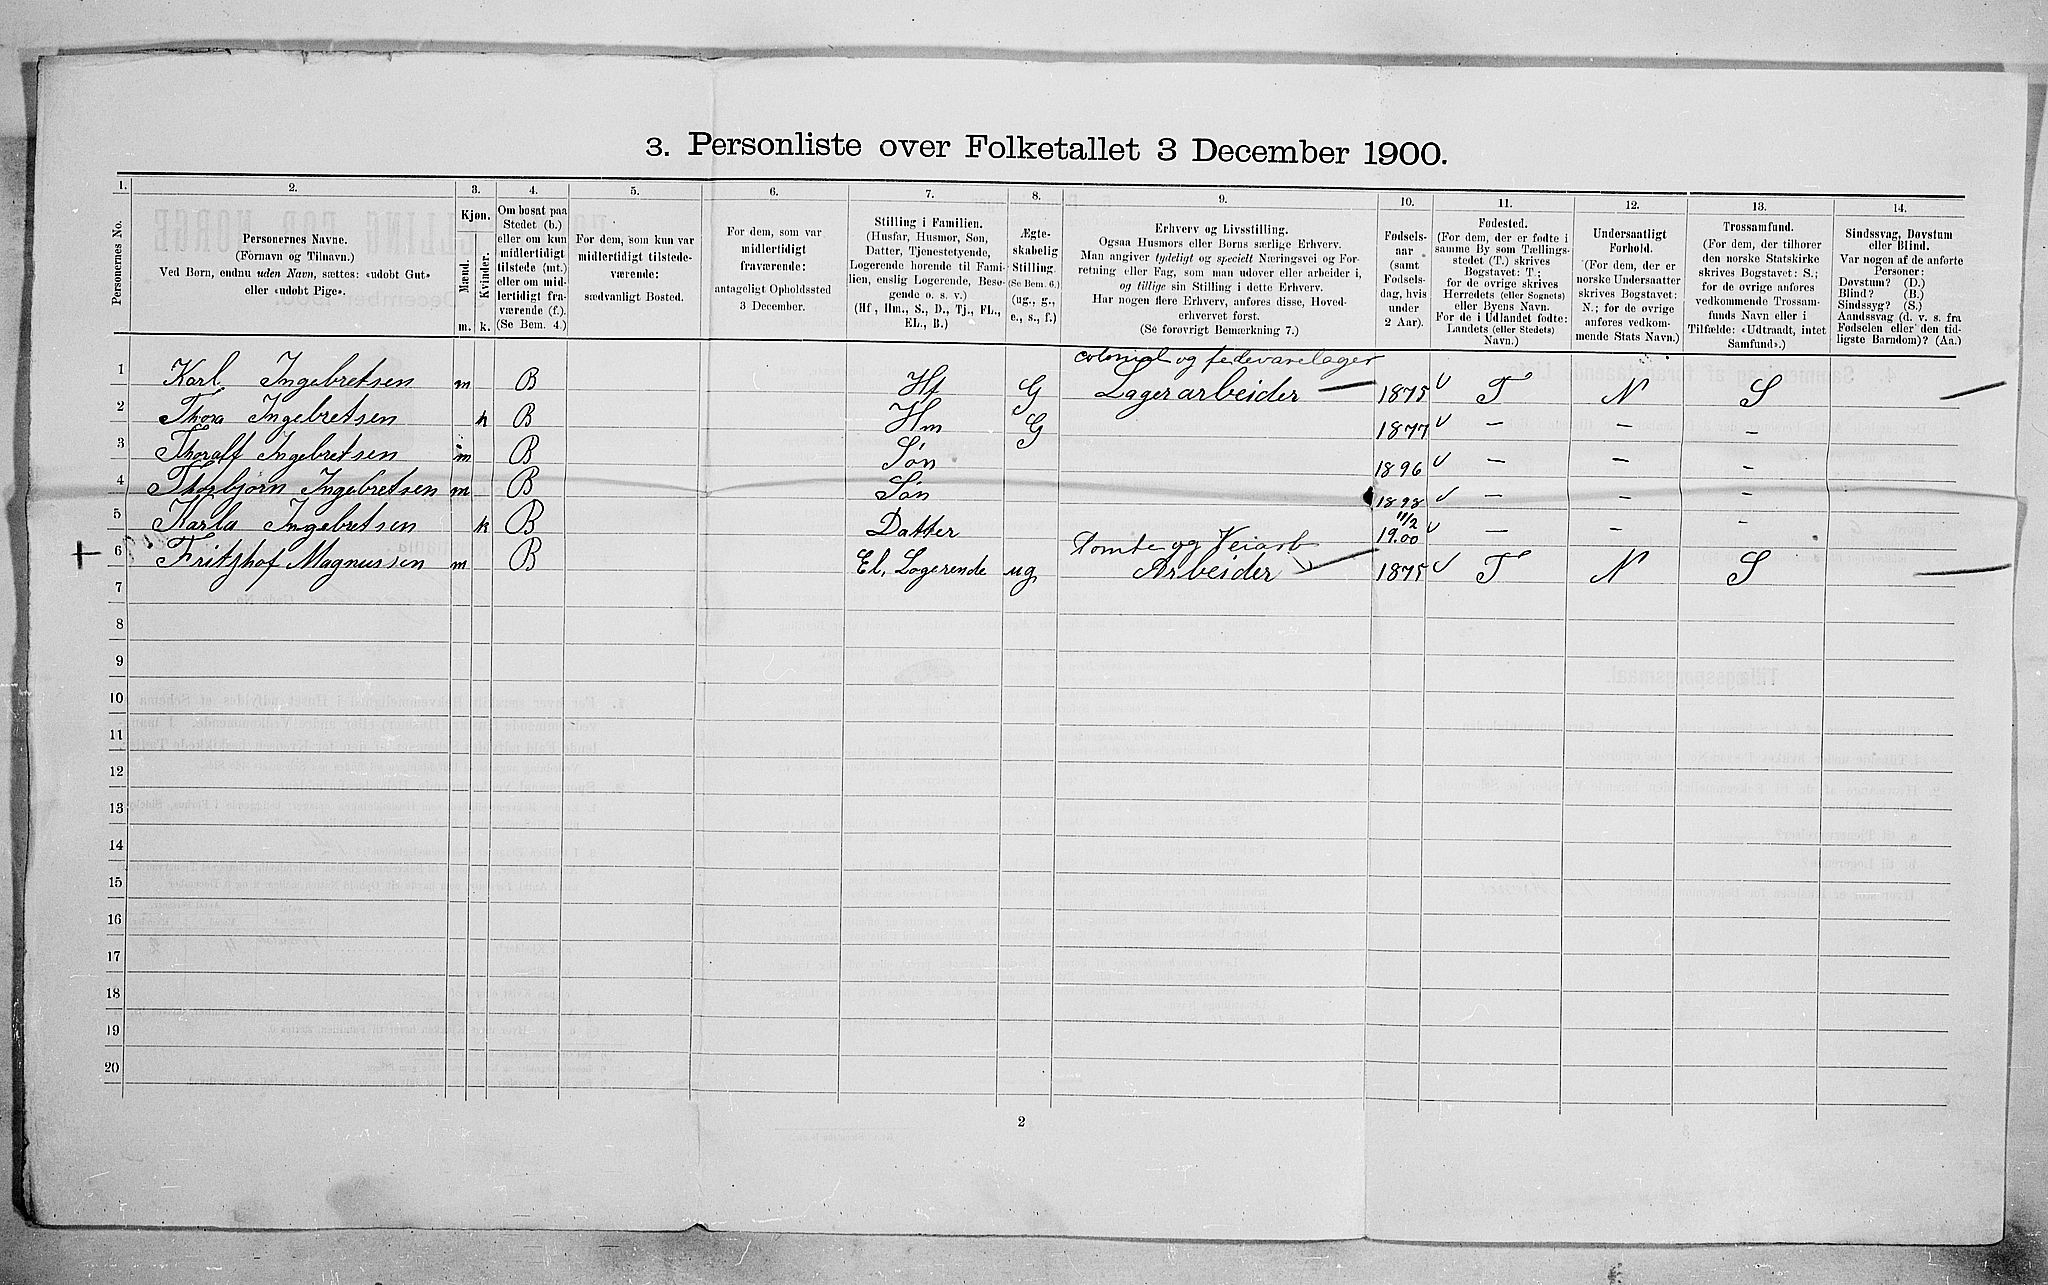 3. Personliste over Folketallet 3 December 1900.
1. 2. 3. 4. 5. 6. 7. 8. 9. 10. 11. 12. 13. 14.
Personernes No.
Personernes Navne.
(Fornavn og Tilnavn.)
Ved Børn, endnu uden Navn, sættes: «udøbt Gut»
eller «udøbt Pige».
Kjøn.
Mænd.
Kvinder.
m. k.
Om bosat paa
Stedet (b.)
eller om kun
midlertidigt
tilstede (mt.)
eller om mid-
lertidigt fra-
værende (f.).
(Se Bem. 4.)
For dem, som kun var
midlertidigt tilstede-
værende:
sædvanligt Bosted.
For dem, som var
midlertidigt
fraværende:
antageligt Opholdssted
3 December.
Stilling i Familien.
(Husfar, Husmor, Søn,
Datter, Tjenestetyende,
Logerende hørende til Fami-
lien, enslig Logerende, Besø-
gende o. s. v.)
(Hf., Hm., S., D., Tj., FL.,
EL., B.)
Ægte-
skabelig
Stilling.
(Se Bem. 6.)
(ug., g.,
e., s., f.)
Erhverv og Livsstilling.
Ogsaa Husmors eller Børns særlige Erhverv.
Man angiver tydeligt og specielt Næringsvei og For-
retning eller Fag, som man udøver eller arbeider i,
og tillige sin Stilling i dette Erhverv.
Har nogen flere Erhverv, anføres disse, Hoved-
erhvervet først.
(Se forøvrigt Bemærkning 7.)
Fødsels-
aar
(samt
Fødsels-
dag, hvis
under
2 Aar).
Fødested.
(For dem, der er fødte i
samme By som Tællings-
stedet (T.) skrives
Bogstavet: T;
for de øvrige skrives
Herredets (eller Sognets)
eller Byens Navn.
For de i Udlandet fødte:
Landets (eller Stedets)
Navn.)
Undersaatligt
Forhold.
(For dem, der er
norske Undersaatter
skrives Bogstavet:
N.; for de øvrige
anføres vedkom-
mende Stats Navn.)
Trossamfund.
(For dem, der tilhører
den norske Statskirke
skrives Bogstavet: S.;
for de øvrige anføres
vedkommende Trossam-
funds Navn eller i
Tilfælde: «Udtraadt, intet
Samfund».)
Sindssvag, Døvstum
eller Blind.
Var nogen af de anførte
Personer:
Døvstum? (D.)
Blind? (B.)
Sindssyg? (S.)
Aandssvag (d. v. s. fra
Fødselen eller den tid-
ligste Barndom)? (Aa.)
colonial og fedevarelager
1 Karl Ingebretsen m B Hf G Lagerarbeider — 1875 T N S —
2 Thora Ingebretsen k B Hm G 1877 — — —
3 Thoralf Ingebretsen m B Søn 1896 — — —
4 Thorbjørn Ingebretsen m B Søn 1898 — — —
11/2
5 Karla Ingebretsen k B Datter 1900 — — —
Tomte og Veiarb
+ 6 Fritzhof Magnussen m B El. Logerende ug Arbeider 1875 T N S —
7
8
9
10
11
12
13
14
15
16
17
18
19
20
2